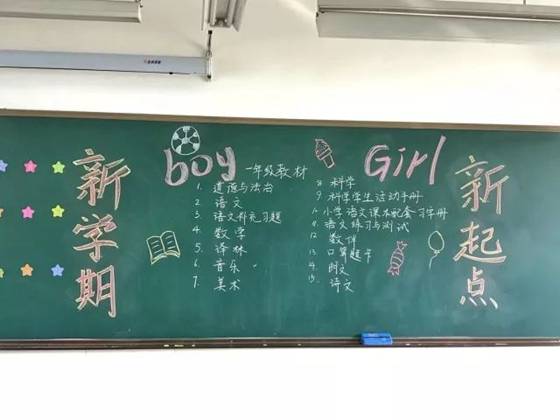 新学期
boy
一年级教材
Girl
1. 道德与法治
2. 语文
3. 语文补充习题
4. 数学
5. 译林
6. 音乐
7. 美术
8 科学
9. 科学学生活动手册
小学语文课本配套习字册
语文练习与测试
12. 数伴
13. 口算题卡
14. 时文
15. 诗文
新起点